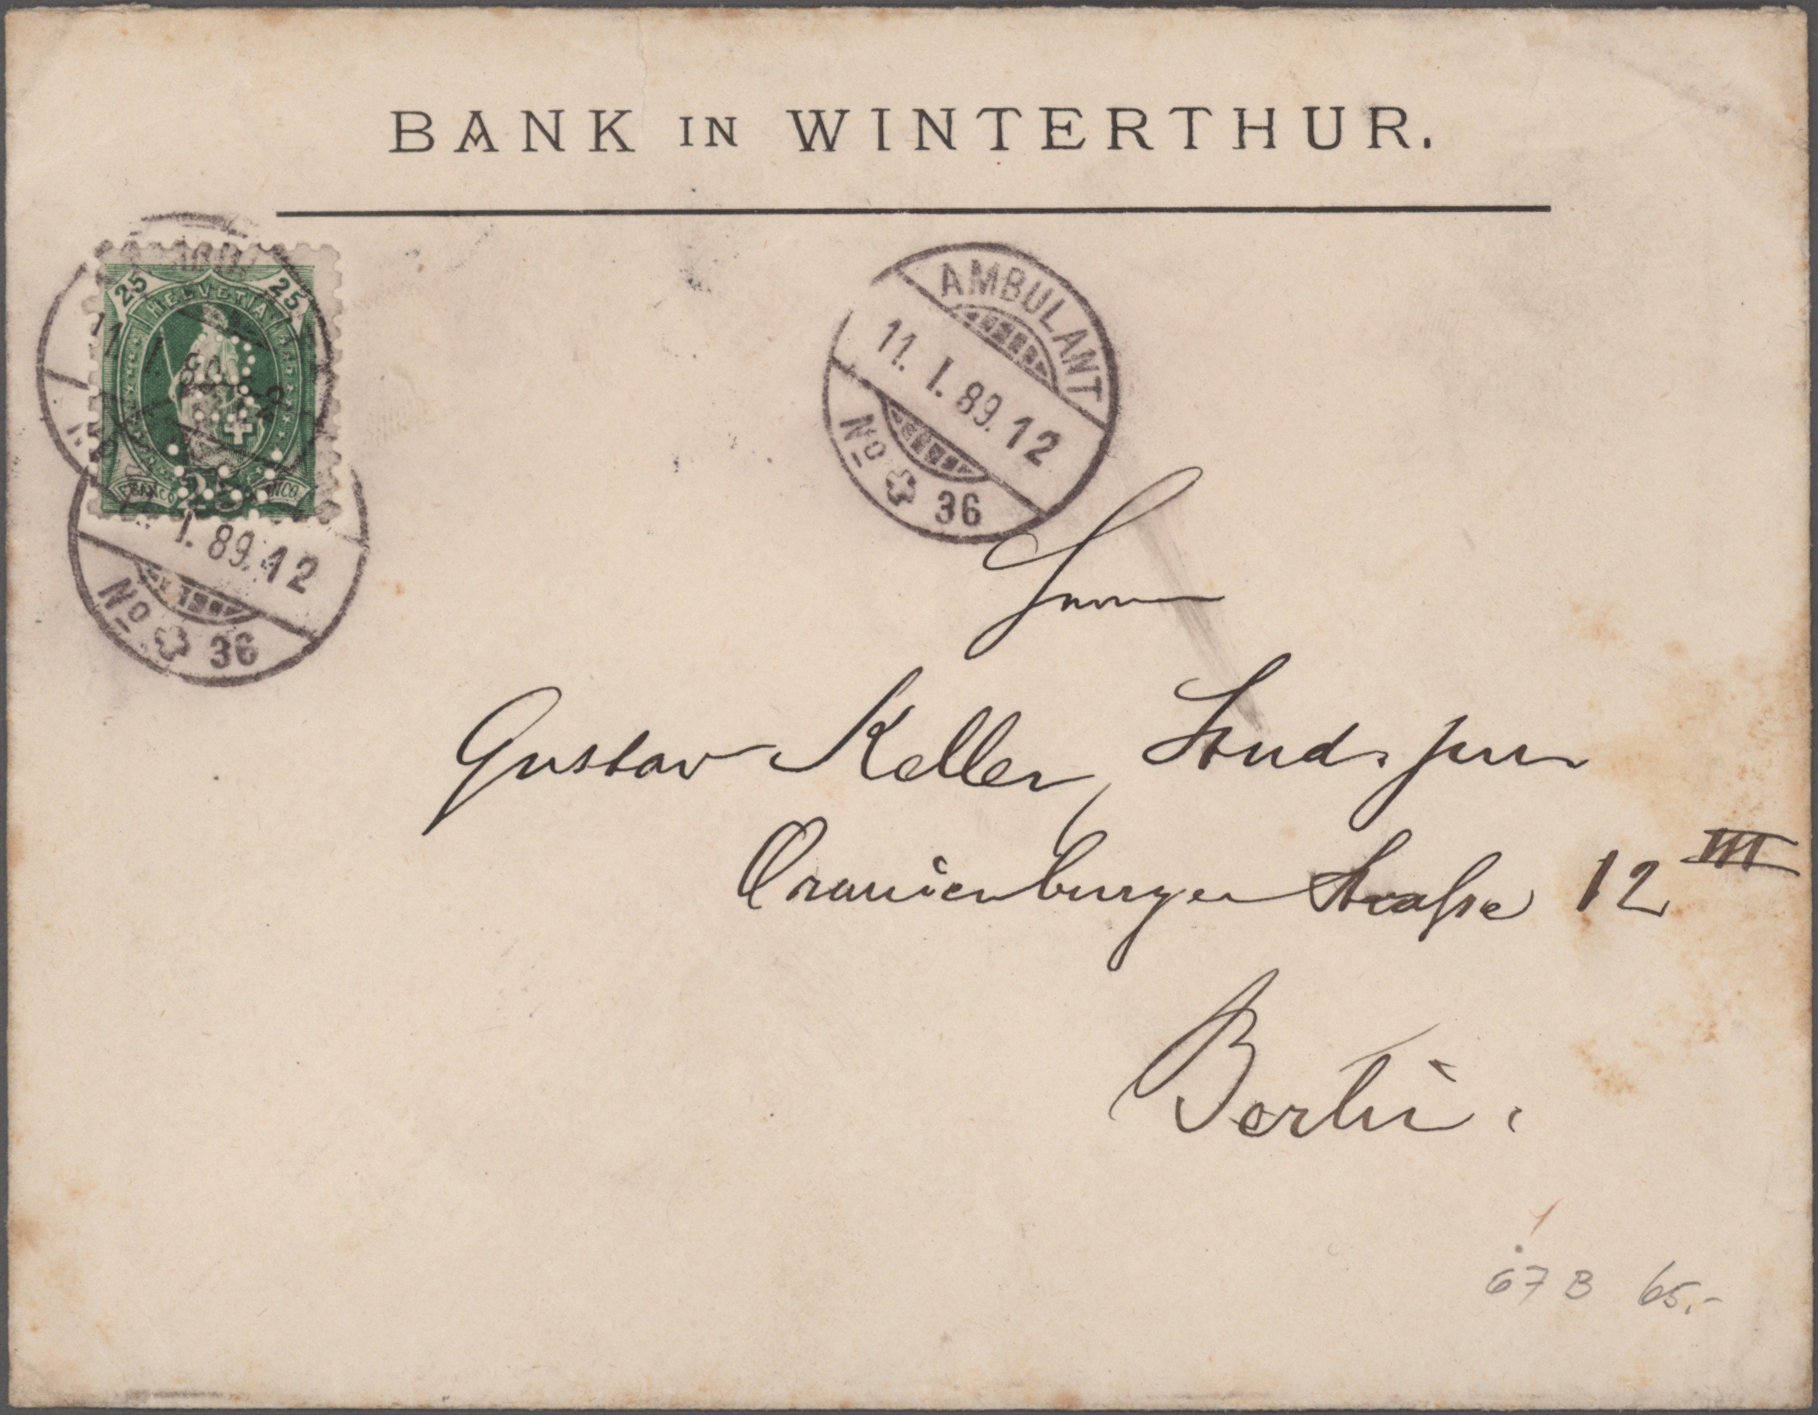 BANK IN WINTERTHUR.
25 HELVETIA 25
FRANCO
AMBULANT
11. I. 89. 12
No 36
I. 89. 12
No 36
Herrn
Gustav Keller, Stud. jur.
Oranienburger Straße 12 III
Berlin.
67 B 65.-